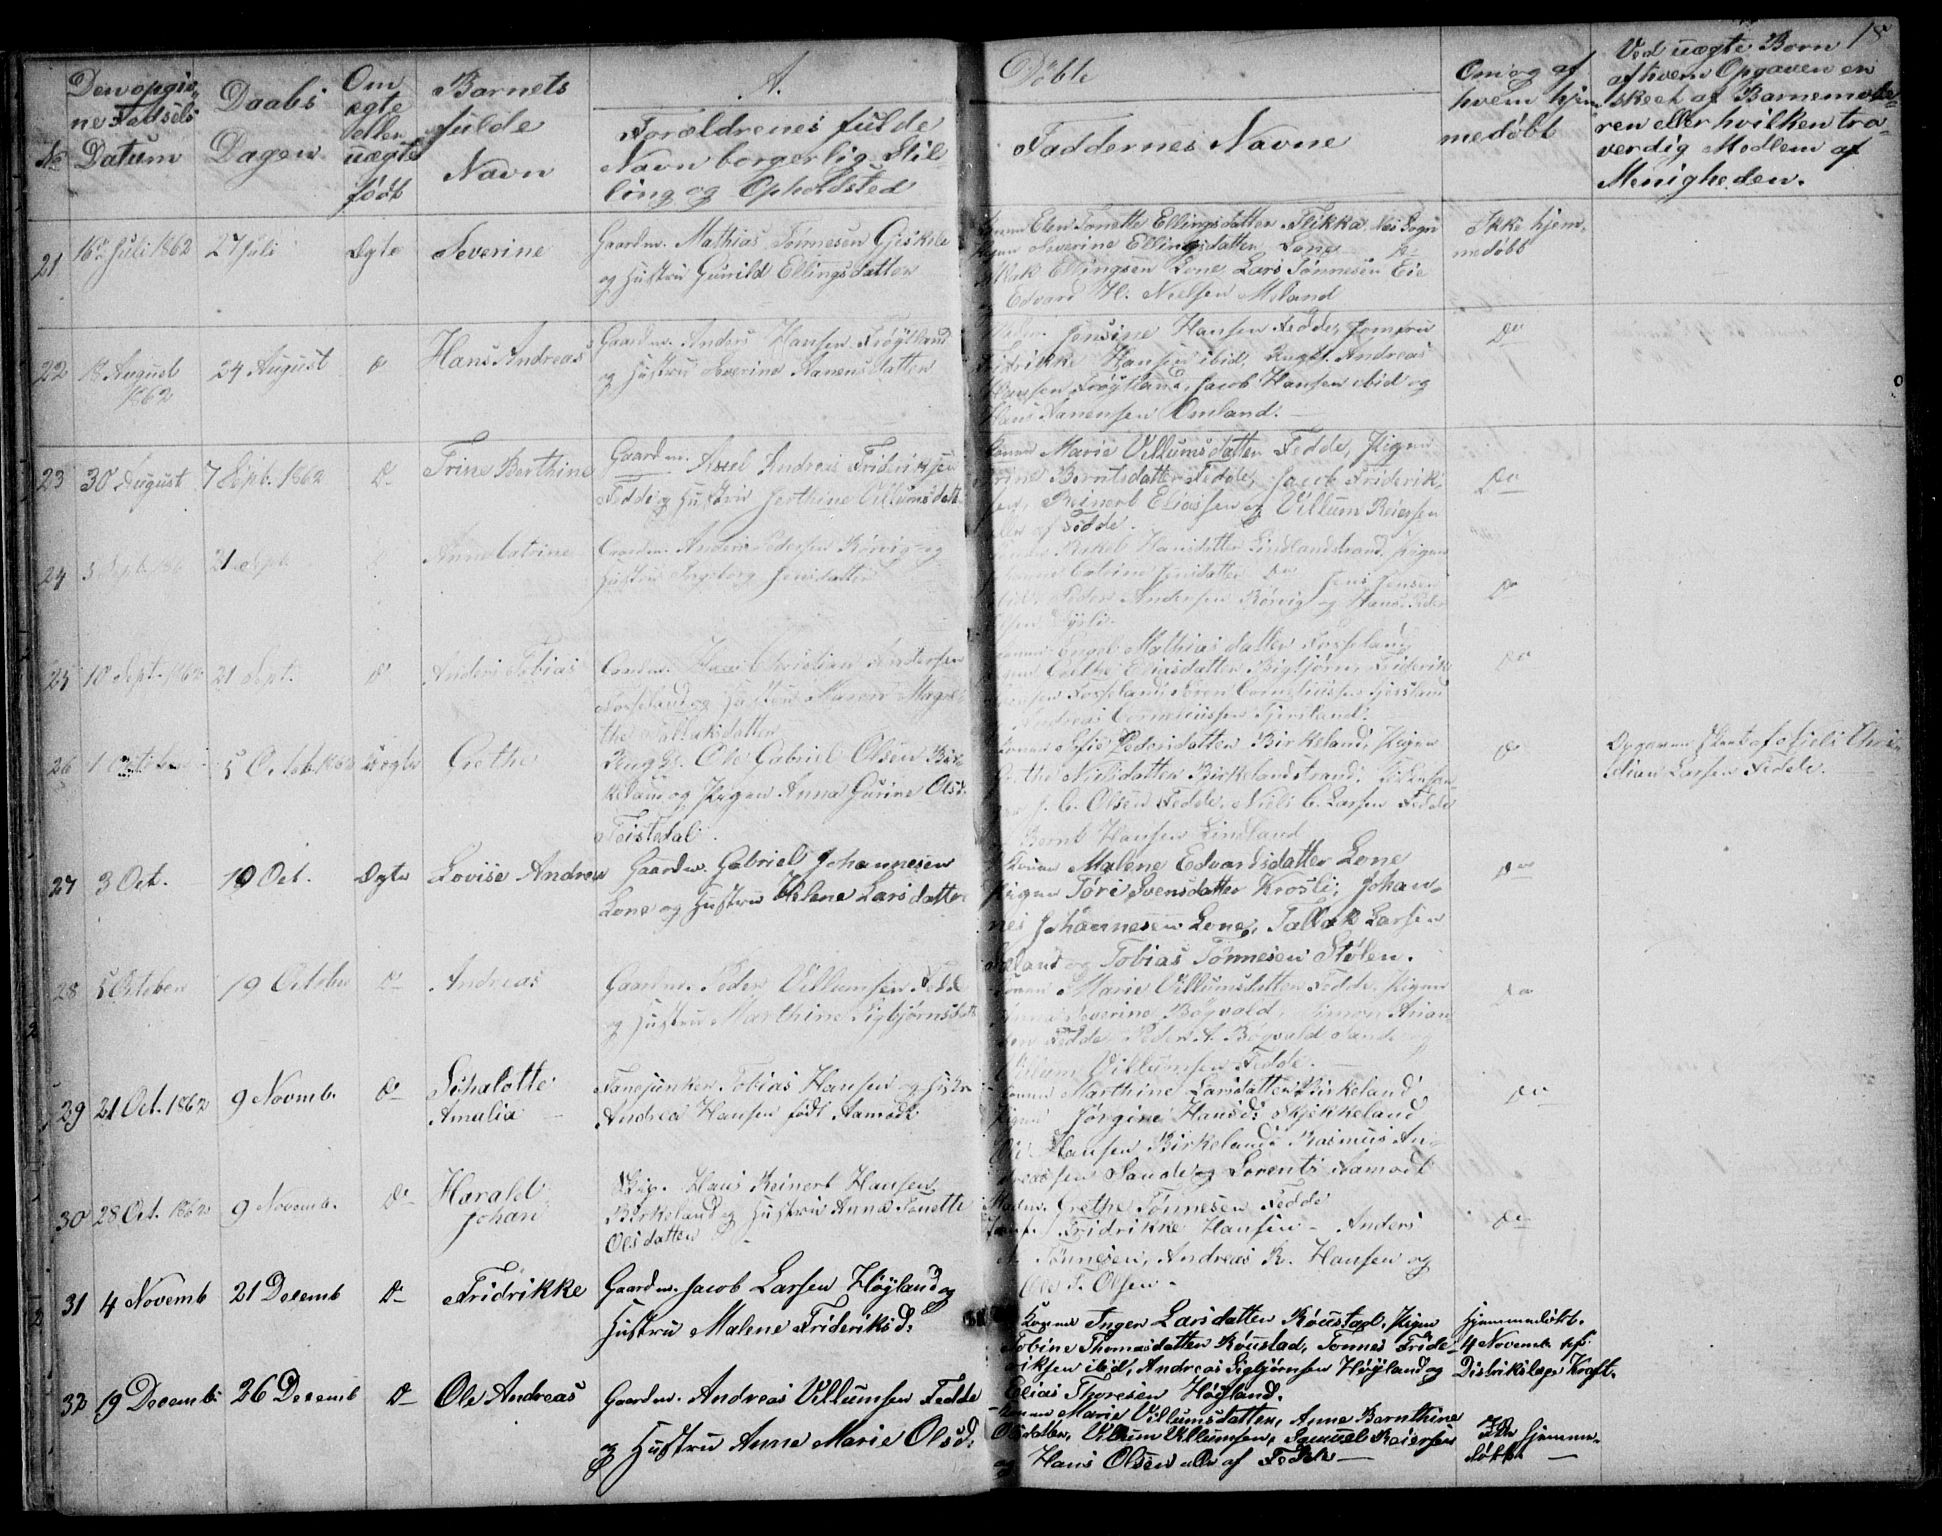 18
No
Den opgiv-
ne Fødsels
Datum
Daabs
Dagen
Om
ægte
eller
uægte
født
Barnets
fulde
Navn
A.
Forældrenes fulde
Navn borgerlig Stil-
ling og Opholdsted
Døbte
Faddernes Navne
Om og af
hvem hjem
medøbt
Ved uægte Børn
af hvem Opgaven er
skeet af Barnemode-
ren eller hvilken tro-
verdig Medlem af
Menigheden.
21
16de Juli 1862
27 Juli
Ægte
Severine
Gaardm. Mathias Tønnesen
og Hustru Gunild Ellingsdatter
Elen Tonette Ellingsdatter Flikka, Nes Sogn
Severine Ellingsdatter Lone
Ellingsen Lone, Lars Tønnesen Eie
Edvard H. Nielsen Meland
Ikke hjem-
medøbt
22
18 August
1862
24 August
Do
Hans Andreas
Gaardm. Anders Hansen Frøytland
og Hustru Severine Aanensdatter
Jonsine Hansen Fedde, Jomfru
Fridrikke Hansen ibid, Ungk. Andreas
Hansen Frøytland, Jacob Hansen ibid og
Hans Aanensen Omland.
Do
23
30 August
7 Septb. 1862
Do
Trine Berthine
Gaardm. Axsel Andreas Frideriksen
Fedde og Hustru Berthine Villumsdatt
Konen Marie Villumsdatter Fedde, Pigen
Trine Berntsdatter Fedde, Jacob Friderik-
sen, Reinert Eliassen og Villum Reiersen
alle af Fedde.
Do
24
3 Sept. 186
21 Sept.
Do
Anne Catrine
Gaardm. Anders Pedersen Rørvig og
Hustru Ingeborg Jensdatter
Hansdatter Lindlandstrand, Pigen
Catrine Jensdatter Do Jens Jensen
ibid, Peder Andersen Rørvig og Hans Peder
Do
25
10 Sept. 1862
21 Sept.
Do
Anders Tobias
Gaardm. Hans Christian Andersen
Fosseland og Hustru Maren Magre-
the Tallaksdatter
Konen Engel Mathiasdatter Fosseland,
Eliasdatter Bigbjørn, Friderik
Fosseland, Søren Corneliussen
Andreas Corneliussen
Do
26
1 October
5 Octob. 1862
Uægte
Grethe
Ungk. Ole Gabriel Olsen Bir-
keland og Pigen Anna Gurine Olsd.
Feistedal.
Konen Sofie Pedersdatter Birkeland, Pigen
Grethe Nielsdatter Birkelandstrand,
J. C. Olsen Fedde, Niels C. Larsen Fedde
Bernt Hansen Lindland
Do
Opgaven skeet af Niels Chri-
stian Larsen Fedde.
27
3 Oct.
19 Oct.
Ægte
Lovise Andrea
Gaardm. Gabriel Johannesen
Lone og Hustru Helene Larsdatter
Konen Malene Edvardsdatter Lone
Pigen Tori Svensdatter Krosli, Johan-
nes Johannesen Lone, Tallak Larsen
og Tobias Tønnesen Stølen.
Do
28
5 October
19 October
Do
Andreas
Gaardm. Peder Villumsen Fedde
og Hustru Marthine Sigbjørnsdatt
Konen Marie Villumsdatter Fedde, Pigen
Anna Severine Bøgvald, Simon Anan-
sen Fedde, Peder A. Bøgvald Sande og
Villum Villumsen Fedde.
Do
29
21 Oct. 1862
9 Novmb.
Do
Schalotte
Amalia
Fanejunker Tobias Hansen og Hustru
Andrea Hansen født Aamodt
Konen Marthine Larsdatter Birkeland,
Pigen Jørgine Hansd: Skjekkeland,
Ole Hansen Birkeland, Rasmus An-
dreassen Sande og Lorents Aamodt
Do
30
28 Oct. 1862
9 Novemb.
Do
Harald
Johan
Skip. Hans Reinert Hansen
Birkeland og Hustru Anna Tonette
Olsdatter
Madm. Grethe Tønnesen Fedde
Jomf. Fridrikke Hansen - Anders
Tønnesen, Andreas R. Hansen og
Ole T. Olsen -
Do
31
4 Novemb
21 Decemb
Do
Fridrikke
Gaardm. Jacob Larsen Høyland og
Hustru Malene Frideriksd:
Konen Inger Larsdatter Røustad, Pigen
Tobine Thomasdatter Røustad, Tønnes Fride-
riksen ibid, Andreas Sigbjørnsen Høyland og
Elias Thoresen Høyland.
Hjemmedøbt.
4 Novemb. af
Distriktslæge Kraft.
32
19 Decemb.
26 Decemb
Do
Ole Andreas
Gaardm. Andreas Villumsen Fedde
og Hustru Anne Marie Olsd:
Konen Marie Villumsdatter, Anne Bernthine
Olsdatter, Villum Villumsen, Samuel Reiersen
og Hans Olsen alle af Fedde
Ikke hjemme-
døbt